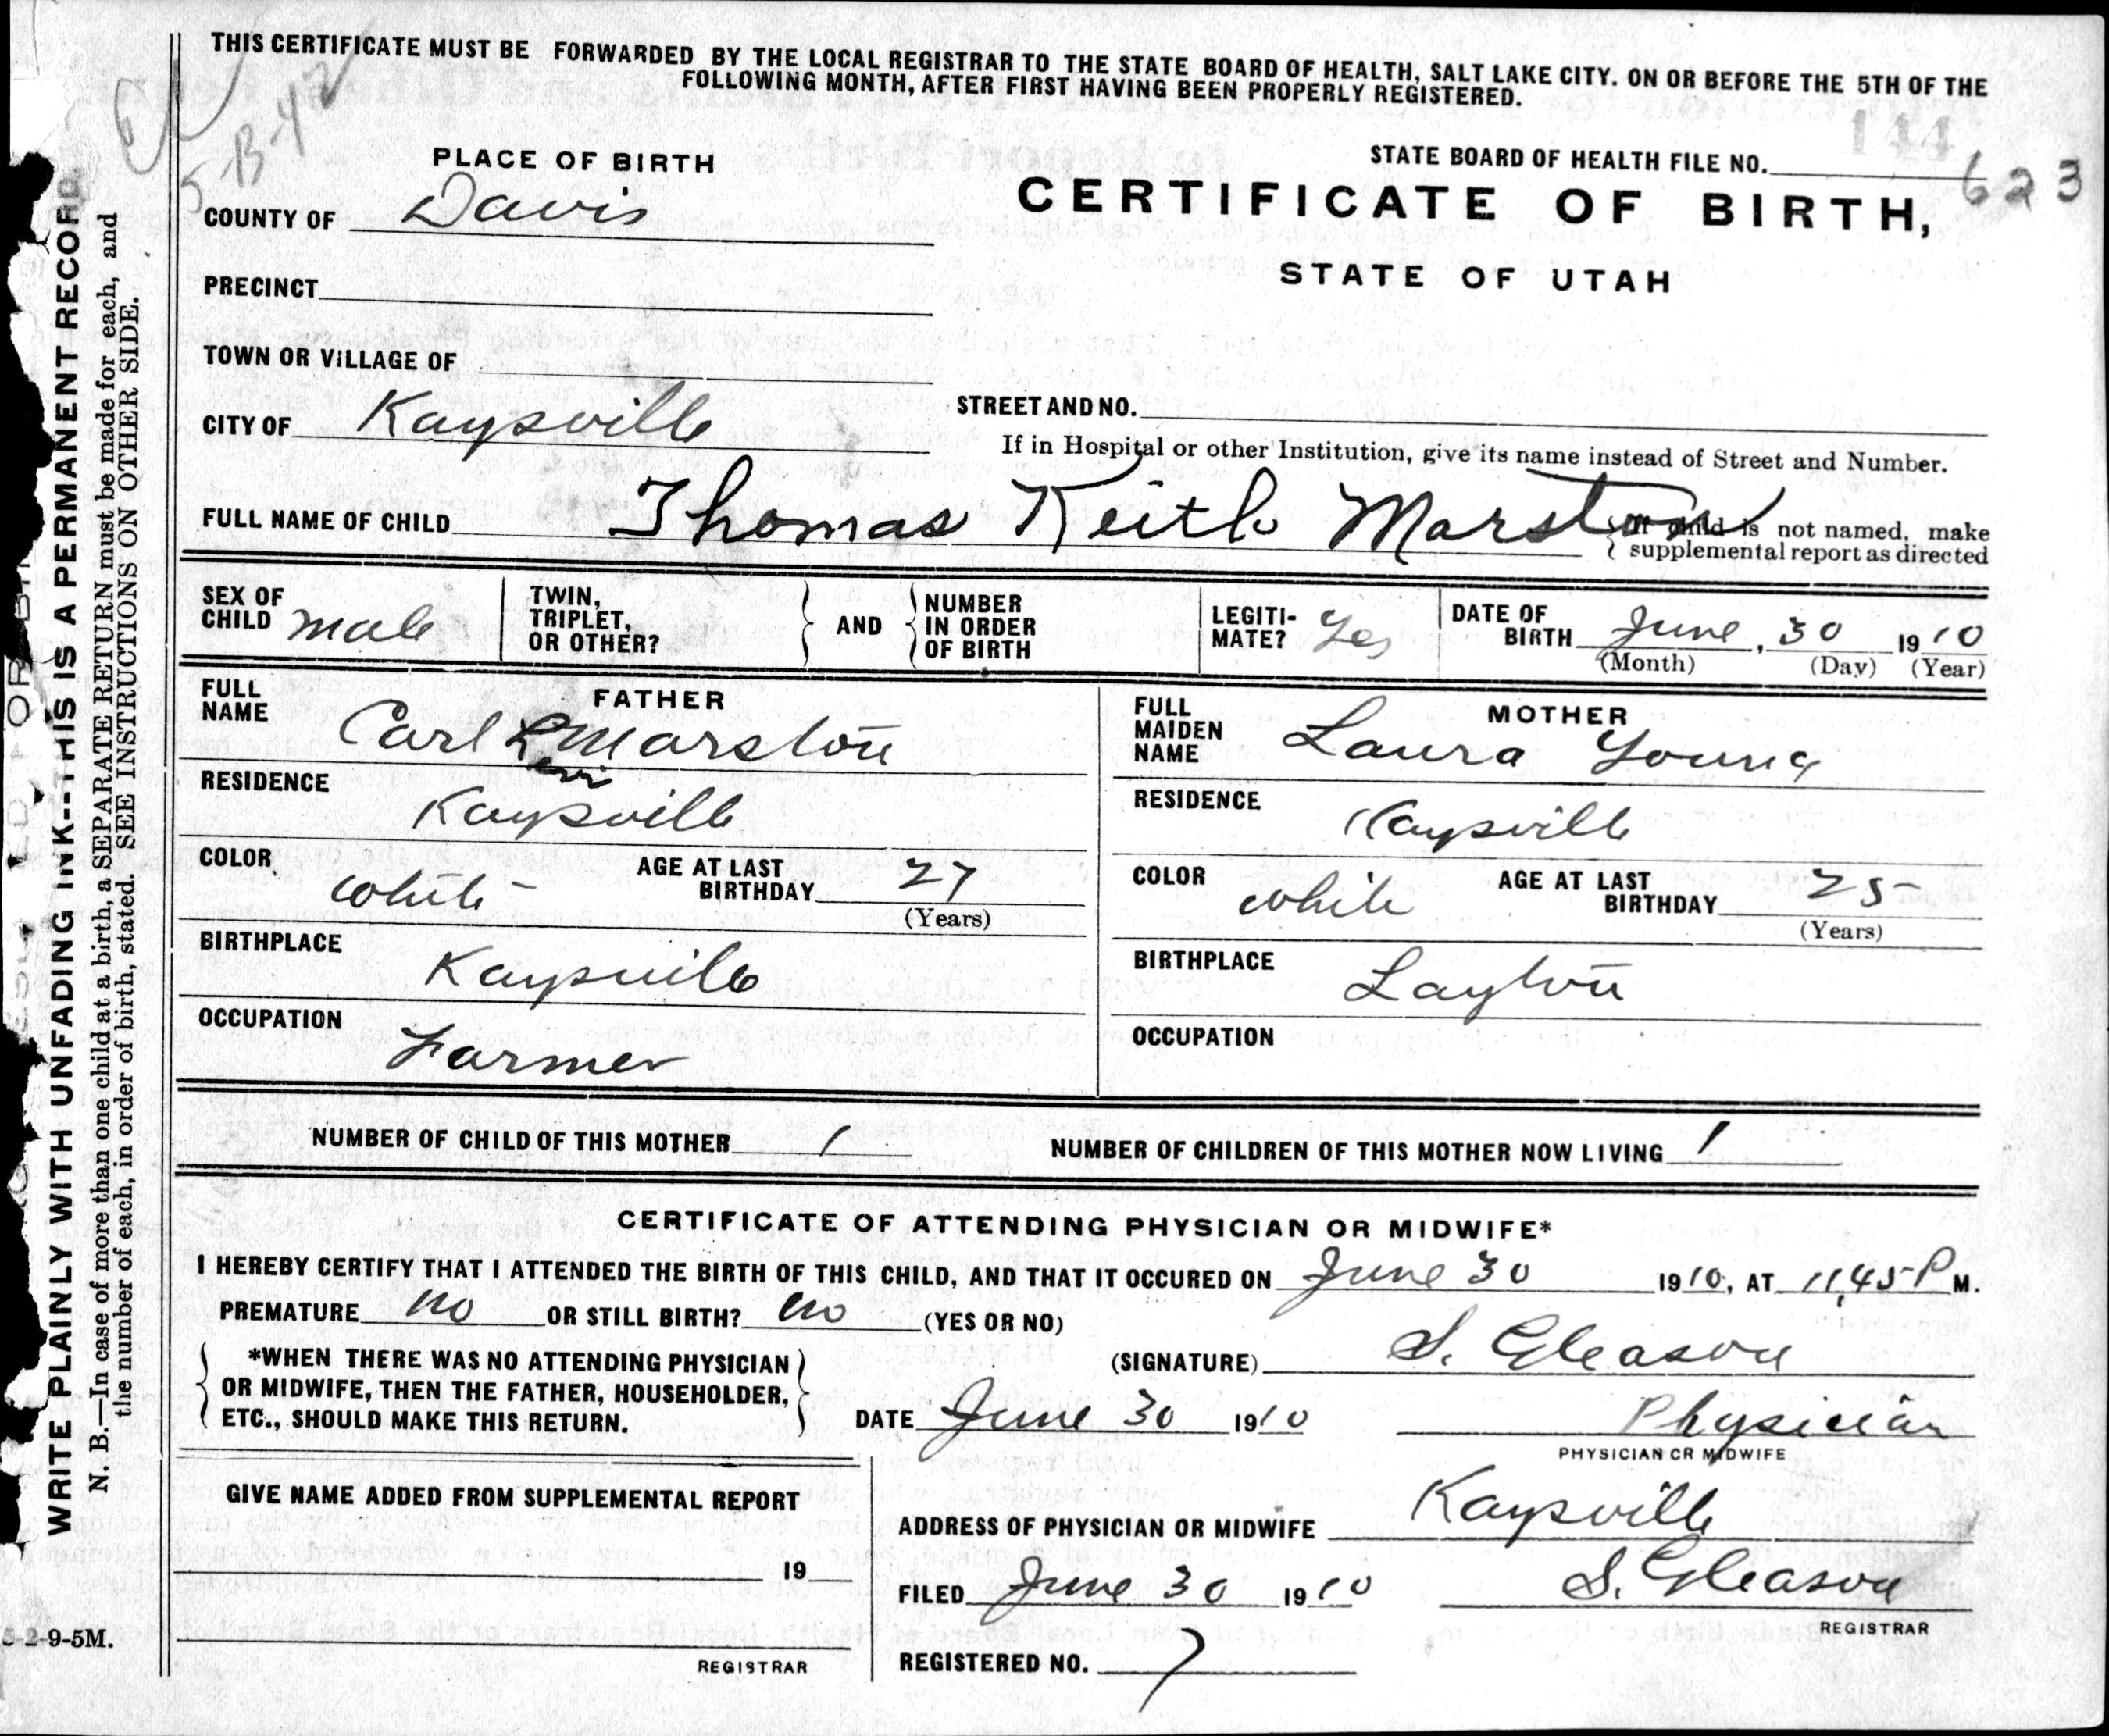 THIS CERTIFICATE MUST BE FORWARDED BY THE LOCAL REGISTRAR TO THE STATE BOARD OF HEALTH, SALT LAKE CITY. ON OR BEFORE THE 5TH OF THE
FOLLOWING MONTH, AFTER FIRST HAVING BEEN PROPERLY REGISTERED.
5-B-42
144
PLACE OF BIRTH
STATE BOARD OF HEALTH FILE NO. 623
COUNTY OF Davis
CERTIFICATE OF BIRTH,
STATE OF UTAH
PRECINCT
TOWN OR VILLAGE OF
CITY OF Kaysville
STREET AND NO.
If in Hospital or other Institution, give its name instead of Street and Number.
FULL NAME OF CHILD Thomas Keith Marston
If child is not named, make
supplemental report as directed
SEX OF CHILD male
TWIN, TRIPLET, OR OTHER?
AND
NUMBER IN ORDER OF BIRTH
LEGITI-MATE? Yes
DATE OF BIRTH June, 30 1910
(Month) (Day) (Year)
FATHER
FULL NAME Carl L Marston
Levi
RESIDENCE
Kaysville
COLOR white AGE AT LAST BIRTHDAY 27
(Years)
BIRTHPLACE
Kaysville
OCCUPATION
Farmer
MOTHER
FULL MAIDEN NAME Laura Young
RESIDENCE
Kaysville
COLOR white AGE AT LAST BIRTHDAY 25
(Years)
BIRTHPLACE
Layton
OCCUPATION
NUMBER OF CHILD OF THIS MOTHER 1 NUMBER OF CHILDREN OF THIS MOTHER NOW LIVING 1
CERTIFICATE OF ATTENDING PHYSICIAN OR MIDWIFE*
I HEREBY CERTIFY THAT I ATTENDED THE BIRTH OF THIS CHILD, AND THAT IT OCCURED ON June 30 1910, AT 11,45 P M.
PREMATURE no OR STILL BIRTH? no (YES OR NO)
*WHEN THERE WAS NO ATTENDING PHYSICIAN
OR MIDWIFE, THEN THE FATHER, HOUSEHOLDER,
ETC., SHOULD MAKE THIS RETURN.
(SIGNATURE) S. Gleason
DATE June 30 1910 Physician
PHYSICIAN OR MIDWIFE
GIVE NAME ADDED FROM SUPPLEMENTAL REPORT
19
REGISTRAR
ADDRESS OF PHYSICIAN OR MIDWIFE Kaysville
FILED June 30 1910 S. Gleason
REGISTRAR
REGISTERED NO. 7
WRITE PLAINLY WITH UNFADING INK--THIS IS A PERMANENT RECORD.
N. B.—In case of more than one child at a birth, a SEPARATE RETURN must be made for each, and
the number of each, in order of birth, stated. SEE INSTRUCTIONS ON OTHER SIDE.
5-2-9-5M.